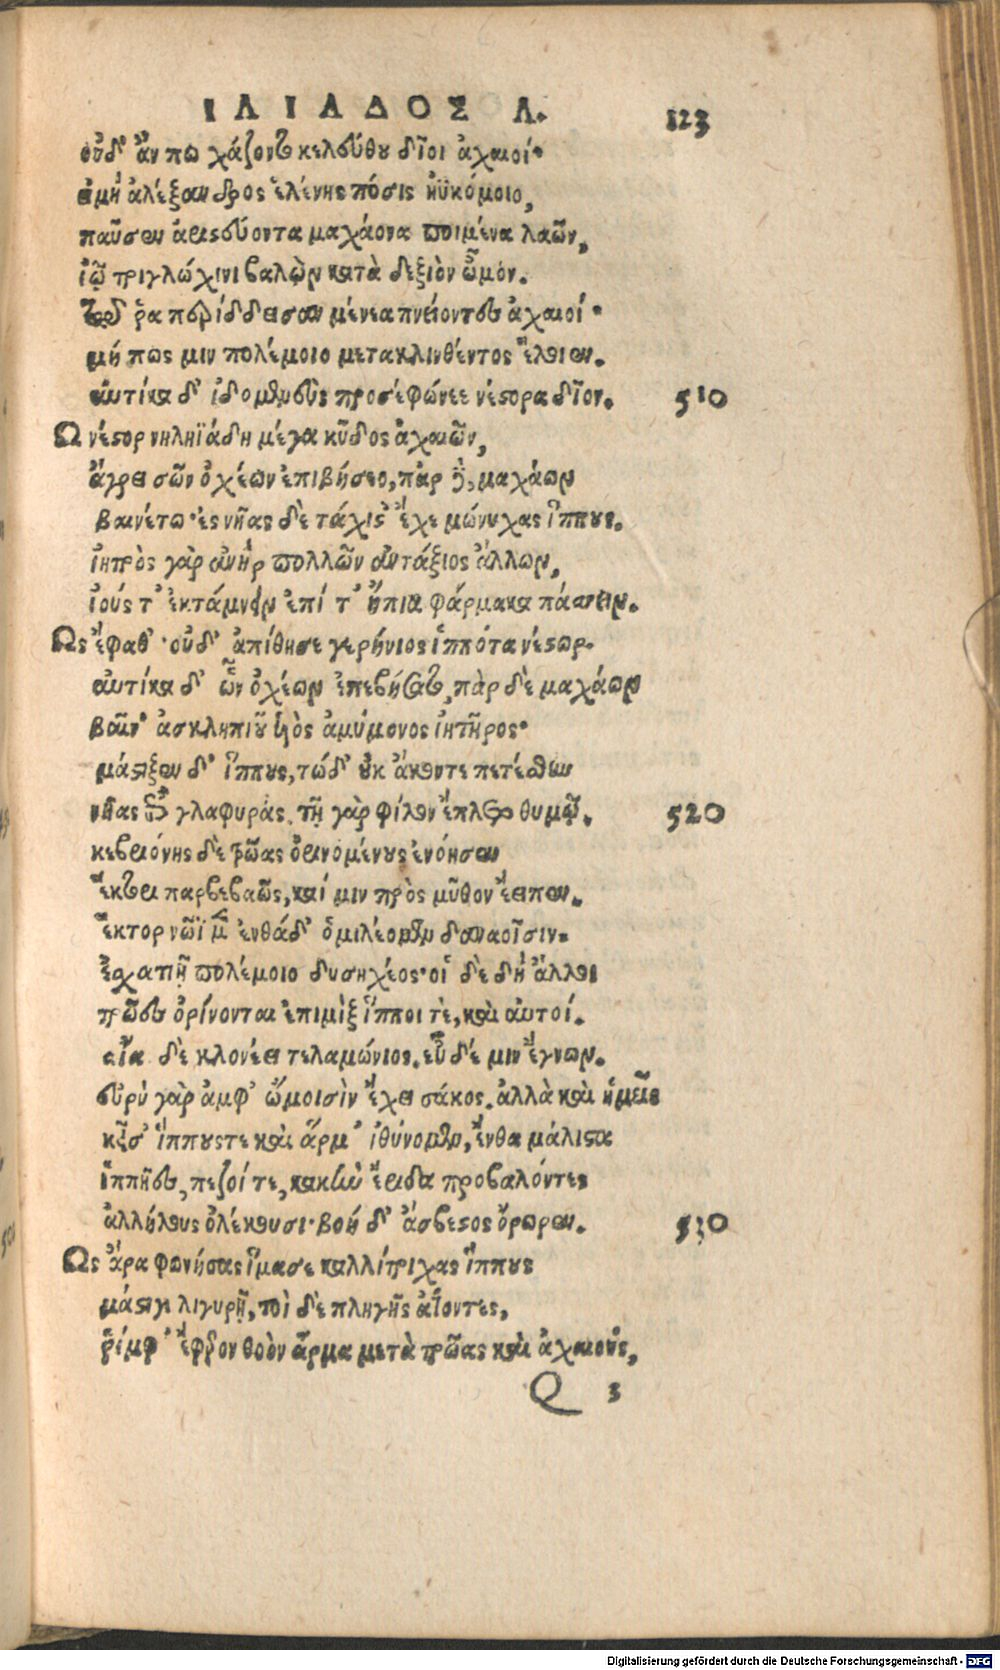 ΙΛΙΑΔΟΣ Λ. 123
οὐδ' ἄν πω χάζοντο κελεύθου δῖοι ἀχαιοί·
εἰ μὴ ἀλέξανδρος ἑλένης πόσις ἠϋκόμοιο,
παῦσεν ἀριστεύοντα μαχάονα ποιμένα λαῶν,
ἰῷ τριγλώχινι βαλὼν κατὰ δεξιὸν ὦμον.
τῷ δ' ῥα περίδδεισαν μένεα πνείοντες ἀχαιοί·
μή πως μιν πολέμοιο μετακλινθέντος ἕλοιεν.
αὐτίκα δ' ἰδομενεὺς προσέφώνεε νέστορα δῖον. 510
Ω νέστορ νηληϊάδη μέγα κῦδος ἀχαιῶν,
ἄγρει σῶν ὀχέων ἐπιβήσεο, πὰρ δὲ, μαχάων
βαινέτω· ἐς νῆας δὲ τάχιστ' ἔχε μώνυχας ἵππους.
ἰητρὸς γὰρ ἀνὴρ πολλῶν ἀντάξιος ἄλλων,
ἰούς τ' ἐκτάμνειν ἐπί τ' ἤπια φάρμακα πάσσειν.
Ως ἔφαθ'· οὐδ' ἀπίθησε γερήνιος ἱππότα νέστωρ.
αὐτίκα δ' ὧν ὀχέων ἐπεβήσετο, πὰρ δὲ μαχάων
βαῖν' ἀσκληπιοῦ υἱὸς ἀμύμονος ἰητῆρος·
μάστιξεν δ' ἵππους, τώδ' οὐκ ἄκοντε πετέσθην
νῆας ἐπὶ γλαφυράς. τῇ γὰρ φίλον ἔπλετο θυμῷ. 520
κεβριόνης δὲ τρῶας ὀρινομένους ἐνόησεν
ἕκτορι παρβεβαῶς, καί μιν πρὸς μῦθον ἔειπεν.
ἕκτορ νῶϊ μὲν ἐνθάδ' ὁμιλέομεν δαναοῖσιν·
ἐσχατιῇ πολέμοιο δυσηχέος· οἱ δὲ δὴ ἄλλοι
τρῶες ὀρίνονται ἐπιμὶξ ἵπποι τὲ, καὶ αὐτοί.
αἴας δὲ κλονέει τελαμώνιος. εὖ δέ μιν ἔγνων.
εὐρὺ γὰρ ἀμφ' ὤμοισὶν ἔχει σάκος. ἀλλὰ καὶ ἡμεῖς
κεῖσ' ἵππους τε καὶ ἅρμ' ἰθύνομεν, ἔνθα μάλιστα
ἱππῆες, πεζοί τε, κακὴν ἔριδα προβαλόντες
ἀλλήλους ὀλέκουσι· βοὴ δ' ἄσβεστος ὄρωρεν. 530
Ως ἄρα φωνήσας ἵμασε καλλίτριχας ἵππους
μάστιγι λιγυρῇ, τοὶ δὲ πληγῆς ἀΐοντες,
ῥίμφ' ἔφερον θοὸν ἅρμα μετὰ τρῶας καὶ ἀχαιοὺς,
Q 3
Digitalisierung gefördert durch die Deutsche Forschungsgemeinschaft - DFG